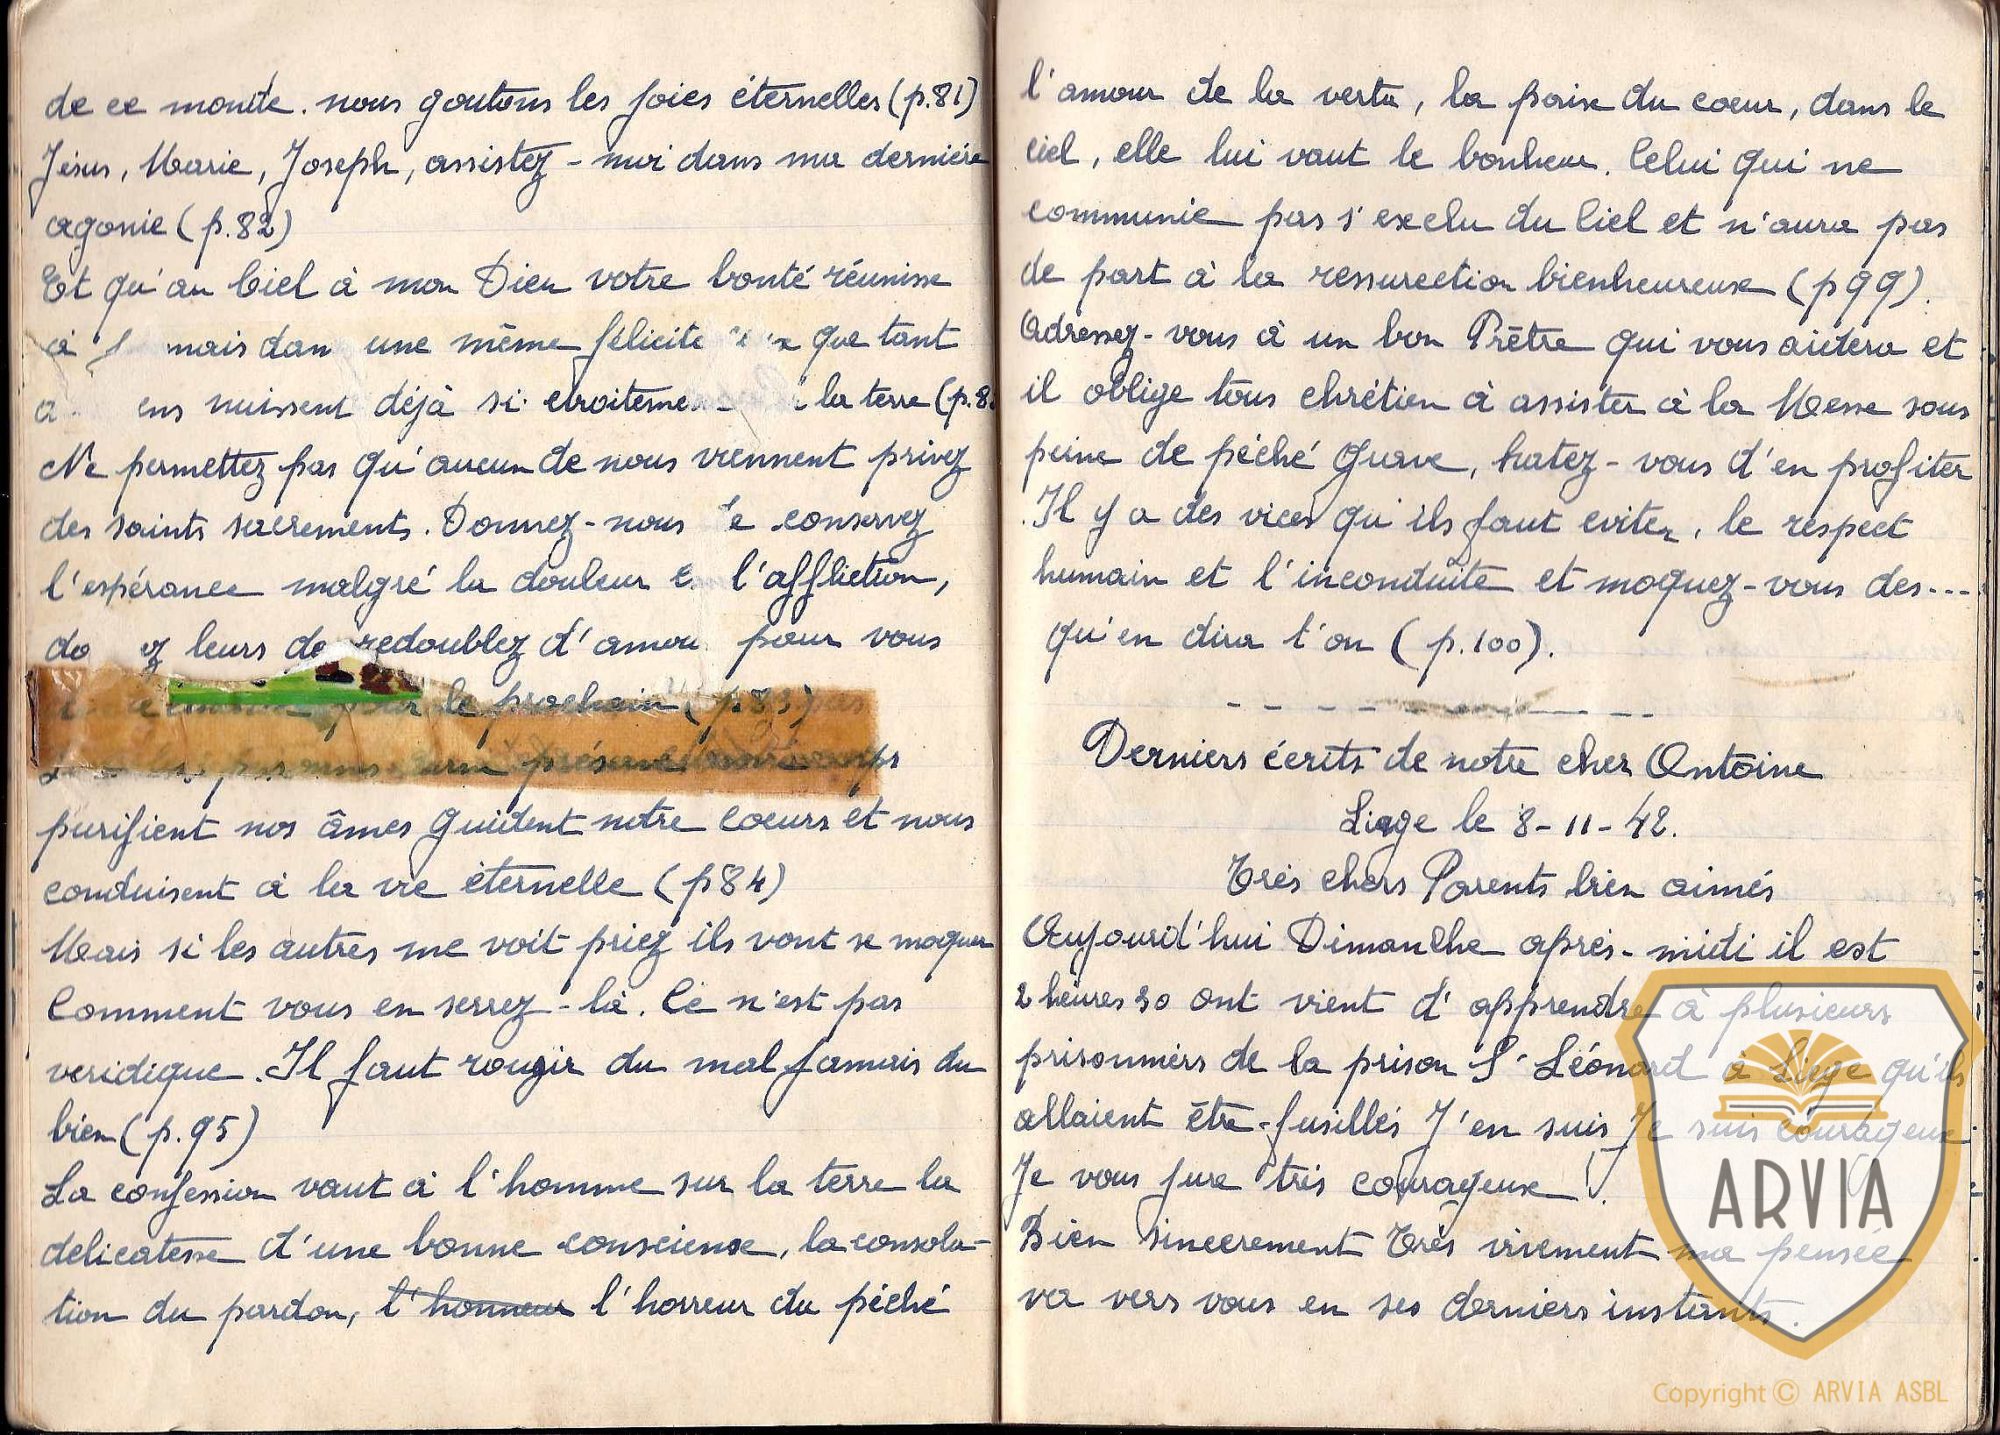 de ce monde. nous goutons les joies éternelles (p.81)
Jésus, Marie, Joseph, assistez-moi dans ma dernière
agonie (p.82)
Et qu'au Ciel à mon Dieu votre bonté réunisse
à mais dan une même félicite que tant
ens nuissent déjà si etroiteme la terre (p.8
Ne permettez pas qu'aucun de nous viennent privez
des saints sacrements. Donnez-nous e conservez
l'espérance malgré la douleur e l'affliction,
do ez leurs de redoublez d'amou pour vous
le prochain (p.83)
corps
purifient nos âmes guident notre coeurs et nous
conduisent à la vie éternelle (p84)
Mais si les autres me voit priez ils vont se moquer
Comment vous en serrez-là. Ce n'est pas
veridique. Il faut rougir du mal jamais du
bien (p.95)
La confession vaut à l'homme sur la terre la
delicatesse d'une bonne conscience, la consola-
tion du pardon, l'honneur l'horreur du péché
l'amour de la vertu, la paix du coeur, dans le
ciel, elle lui vaut le bonheur. Celui qui ne
communie pas s'exclu du Ciel et n'aura pas
de part à la ressurection bienheureuse (p99).
Adressez-vous à un bon Prêtre qui vous aidera et
il oblige tous chrétien à assister à la Messe sous
peine de péché grave, hatez-vous d'en profiter
.Il y a des vices qu'ils faut eviter, le respect
humain et l'inconduite et moquez-vous des...
qu'en dira t'on (p.100).
Derniers écrits de notre cher Antoine
Liège le 8-11-42.
Très chers Parents bien aimés
Aujourd'hui Dimanche après-midi il est
2 heures 30 ont vient d'apprendre à plusieurs
prisonniers de la prison St Léonard à Liège qu'ils
allaient être-fusillés J'en suis Je suis courageux
Je vous jure très courageux !.
Bien sincerement Très vivement ma pensée
va vers vous en ses derniers instants.
ARVIA
Copyright © ARVIA ASBL